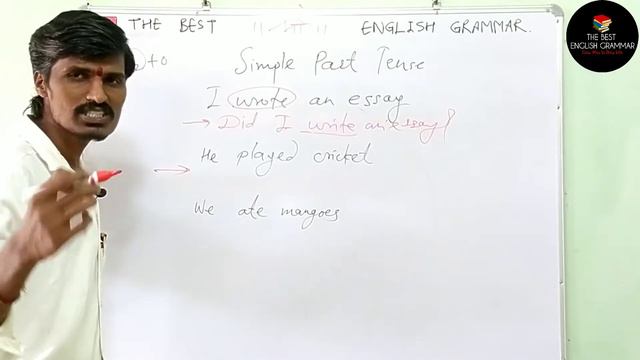 THE BEST ENGLISH GRAMMAR.
+ o Simple Past Tense
I wrote an essay
→ Did I write an essay?
He played cricket
→
We ate mangoes
THE BEST
ENGLISH GRAMMAR